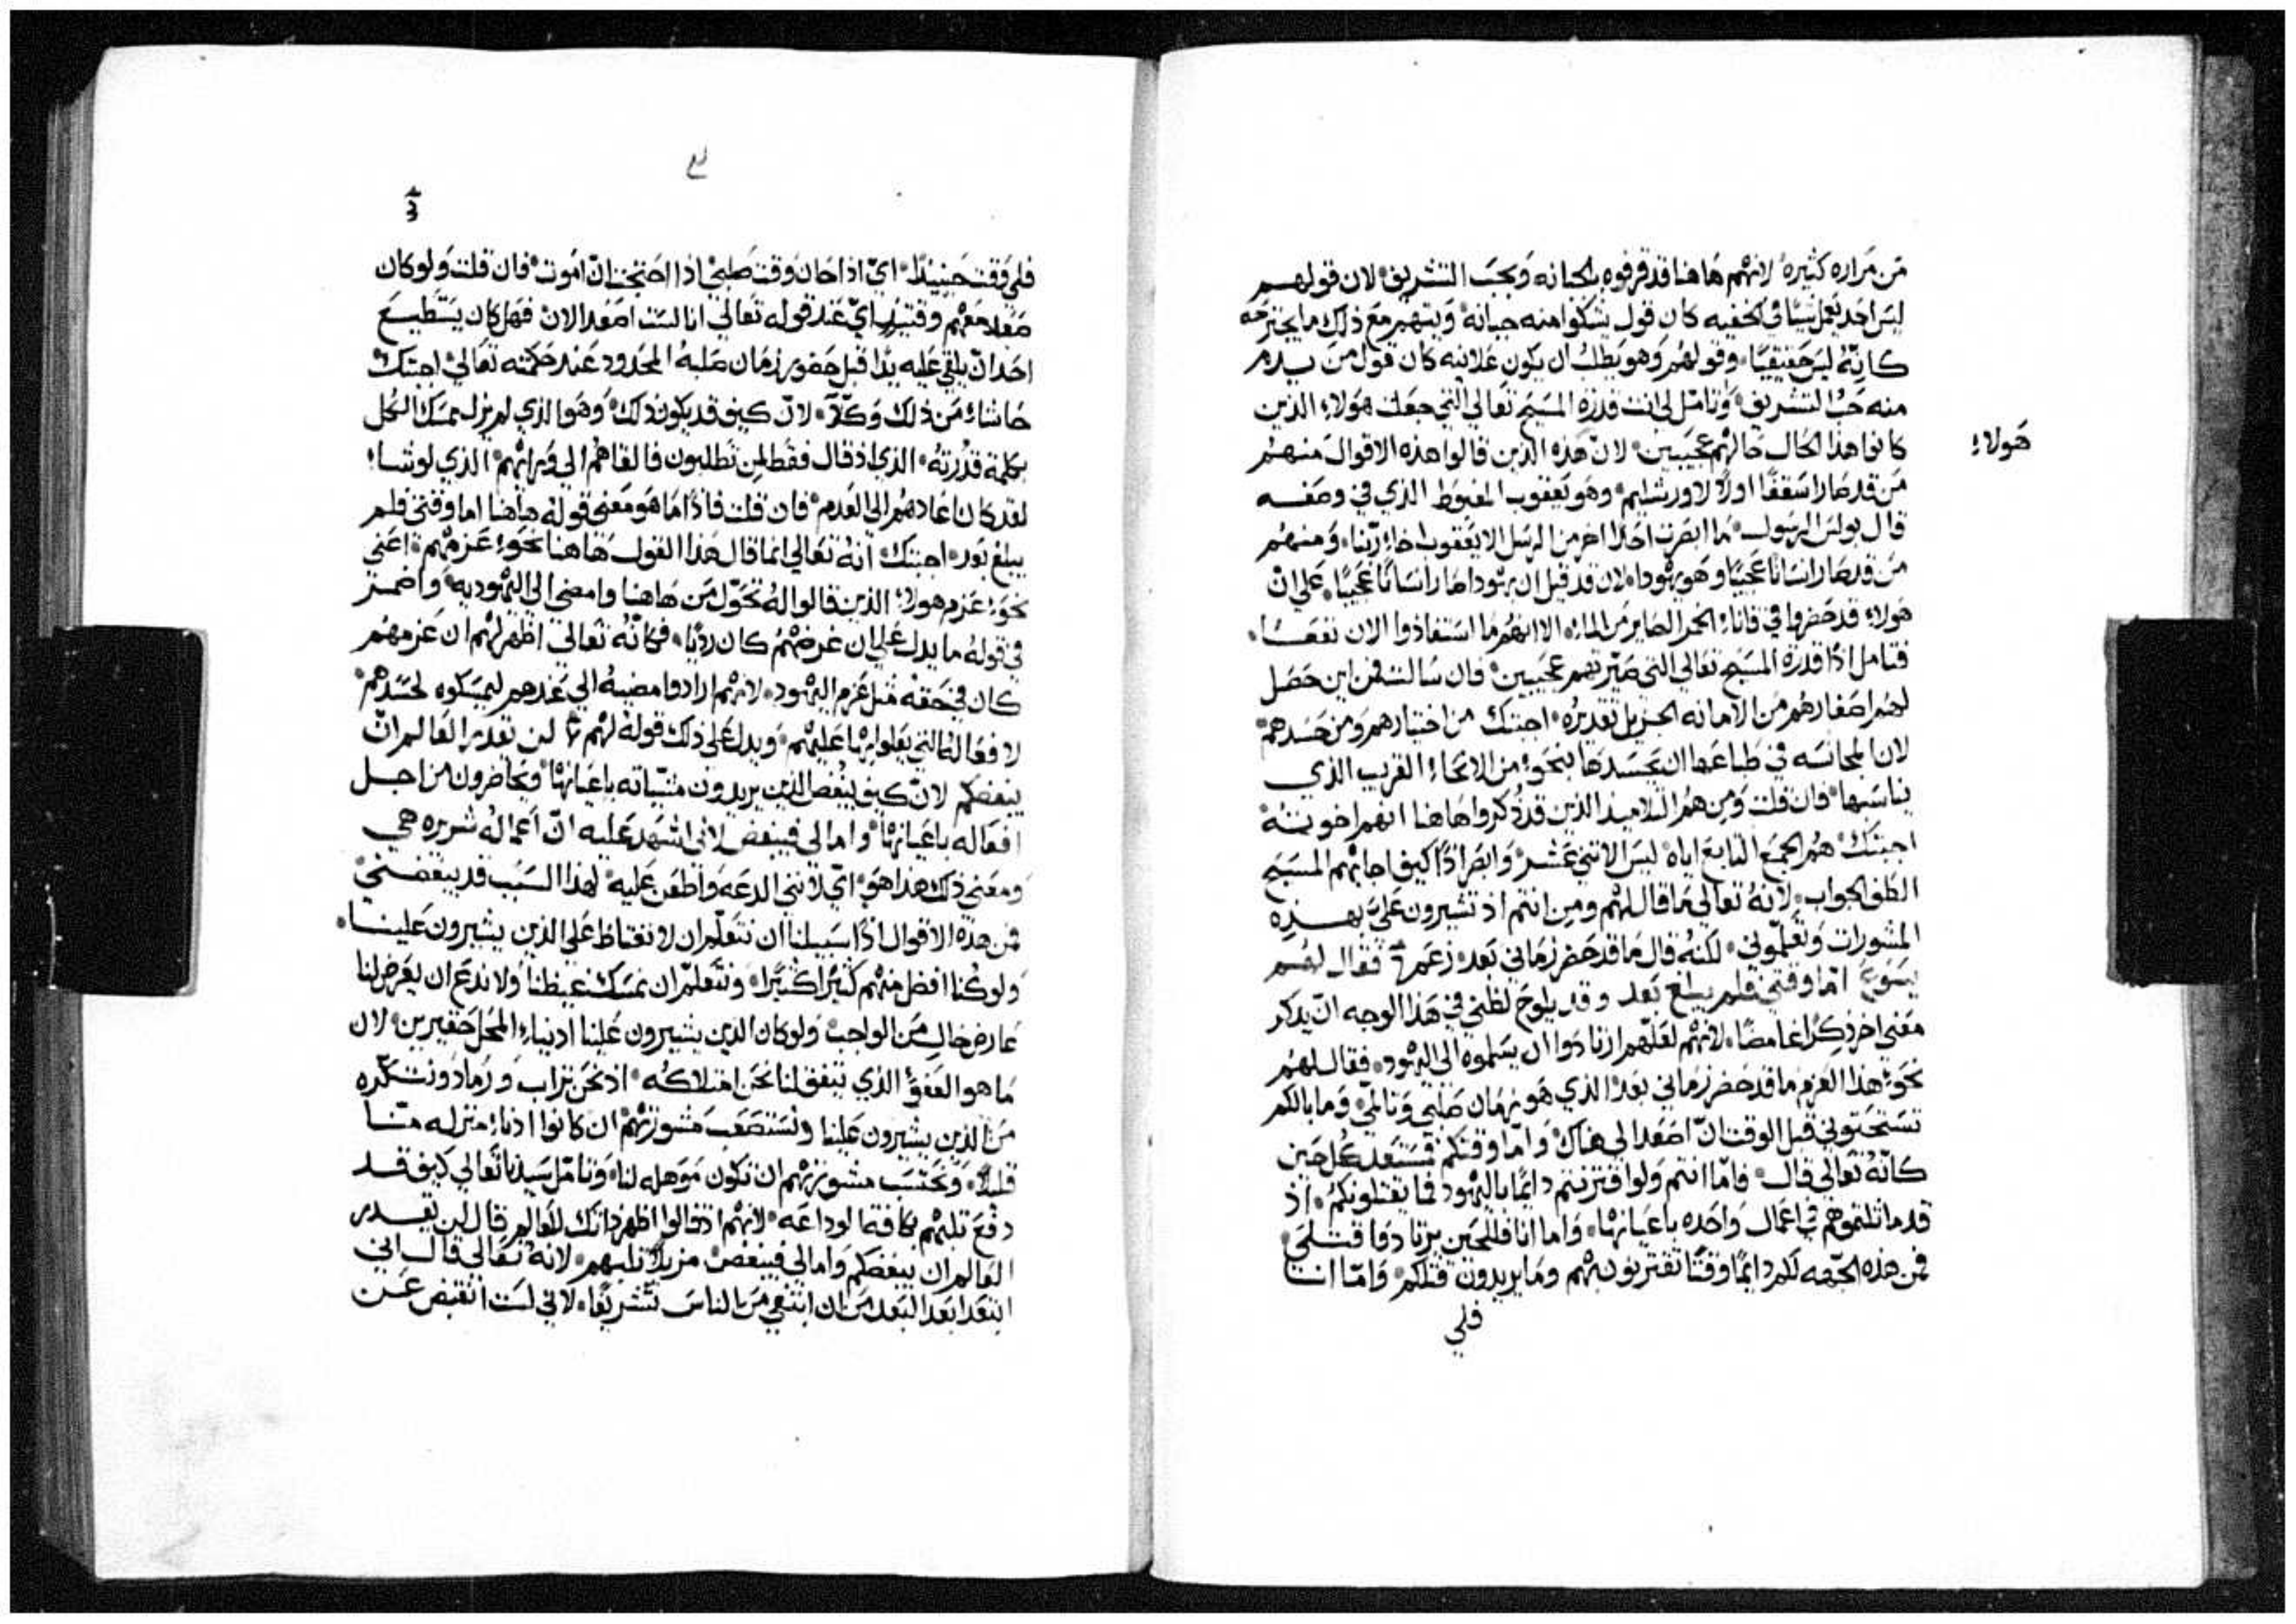 من مراره كثيره لانهم هاهنا قد قرفوه بالجبانه وبحب التشريف لان قولهم
ليس احد يعمل شيًا في الخفيه كان قول يشكوا منه جبانة ويتهم مع ذلك ما يجترحه
كانه ليس حقيقيًا وقولهم وهو يطلب ان يكون علانيه كان قول من يذم
منه حب التشريف وتامل لي انت قدرة المسيح تعالي التي جعلت هولاء الذين
هولاء
كانوا هذا الحال حالهم عجيبين لان هذه الذين قالوا هذه الاقوال منهم
من قد صار اسقفًا اولًا لاورشليم وهو يعقوب المغبوط الذي في وصفه
قال بولس الرسول ما ابصرت احدًا اخر من الرسل الا يعقوب اخا ربنا ومنهم
من قد صار انسانًا عجيبًا وهو يهودا لان قد قيل ان يهودا صار انسانًا عجيبًا علي ان
هولاء قد حضروا في قانا الخمر الصاير من الماء الا انهم ما استفاذوا الان نفعًا
فتامل اذًا قدرة المسيح تعالي التي صيرتهم عجيبين فان سالت فمن اين حصل
لهم اصغارهم من الامانه الجزيل تقديره اجبتك من اختيارهم ومن حسدهم
لان المجانسه في طباعها ان تحسدها بنحو من الانحاء القريب الذي
يناسبها فان قلت ومن هم التلاميذ الذين قد ذكروا هاهنا انهم اخوته
اجبتك هم الجمع التابع اياه ليس الاثني عشر وابصر اذًا كيف اجابهم المسيح
الطف الجواب لانه تعالي ما قال لهم ومن انتم اذ تشيرون علي بهذه
المشورات وتعلموني لكنه قال ما قد حضر زماني بعد زعم فقال لهم
يسوع اما وقتي فلم يبلغ بعد وقد يلوح لظني في هذا الوجه ان يذكر
معني اخر ذكرًا غامضًا لانهم لعلهم ارتادوا ان يسلموه الي اليهود فقال لهم
نحو هذا العزم ما قد حضر زماني بعد الذي هو زمان صلبي وتالمي وما بالكم
تستحثوني قبل الوقت ان اصعد الي هناك واما وقتكم فمستعد كل حين
كانه تعالي قال فاما انتم ولو اقترنتم دايمًا باليهود فما يقتلونكم اذ
قد ماثلتموهم في اعمال واحده باعيانها واما انا فللحين يرتادوا قتلي
فمن هذه الجهه لكم دايمًا وقتًا تقتربون بهم وما يريدون قتلكم واما انا
فلي
فلي وقت حينيذًا اي اذا حان وقت صلبي اذا احتجت ان اموت فان قلت ولو كان
صعد معهم وقتيذ اي عند قوله تعالي انا لست اصعد الان فهل كان يستطيع
احد ان يلقي عليه يدًا قبل حضور زمان صلبه المحدود عند حكمته تعالي اجبتك
حاشا من ذلك وكلا لان كيف قد يكون ذلك وهو الذي لم يزل يمسك الكل
بكلمة قدرته الذي اذ قال فقط لمن تطلبون فالقاهم الي ورايهم الذي لو شاء
لقد كان اعادهم الي العدم فان قلت فاذًا ما هو معني قوله هاهنا اما وقتي فلم
يبلغ بعد اجبتك انه تعالي انما قال هذا القول هاهنا نحو عزمهم اعني
نحو عزم هولاء الذين قالوا له تحول من هاهنا وامضي الي اليهوديه واضمر
في قوله ما يدل علي ان غرضهم كان رديًا فكانه تعالي اظهر لهم ان عزمهم
كان في حقه مثل عزم اليهود لانهم ارادوا مضيه الي عندهم ليمسكوه لحسدهم
لافعاله التي يعلوا بها عليهم ويدل علي ذلك قوله لهم لن تقدر العالم ان
يبغضكم لان كيف يبغض الذين يريدون مشياته باعيانها ويحاضرون من اجل
افعاله باعيانها واما لي فيبغض لاني اشهد عليه ان اعماله شريره هي
ومعني ذلك هذا هو اي لانني الدعه واطعن عليه لهذا السبب قد يبغضني
فمن هذه الاقوال اذًا سبيلنا ان نتعلم ان لا نغتاظ علي الذين يشيرون علينا
ولو كنا افضل منهم كثيرًا كثيرًا ونتعلم ان نمسك غيظنا ولا ندع ان يعرض لنا
عارض خال من الواجب ولو كان الذين يشيرون علينا ادنياء المحل حقيرين لان
ما هو العفو الذي يتفق لنا نحن امتلاكه اذ نحن تراب ورماد ونتكره
من الذين يشيرون علينا ونستصعب مشورتهم ان كانوا ادنا منزله منا
قليلًا ونحتسب مشورتهم ان تكون موهله لنا وتامل سيدنا تعالي كيف قد
دفع ثلبهم بكافة الوداعه لانهم اذ قالوا اظهر ذاتك للعالم قال لن يقدر
العالم ان يبغضكم واما لي فيبغض مزيلًا ثلبهم لانه تعالي قال اني
ابتعد ابعد البعد من ان ابتغي من الناس تشريفًا لاني لست انقبض عن